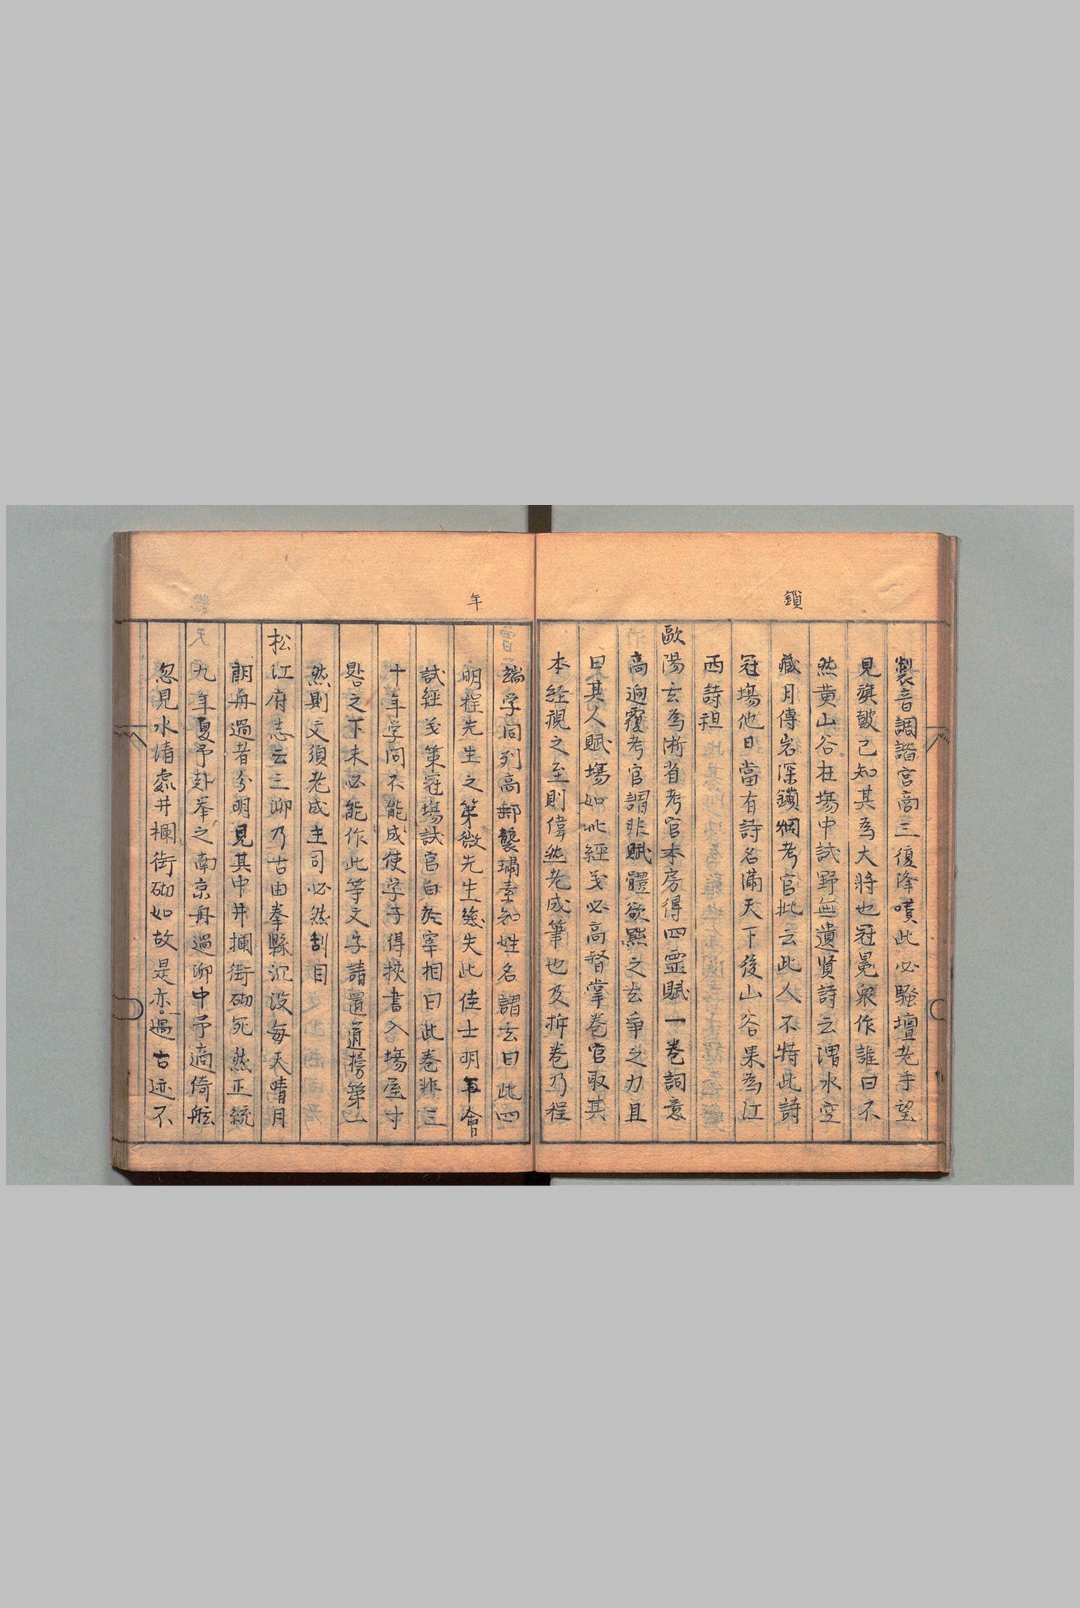 鎖
製音調諧宮商三復降嘆此必騷壇老手望
見旗鼓已知其為大將也冠冕衆作誰曰不
然黄山谷在塲中試野無遺賢詩云渭水空
藏月傳岩深鎖烟考官批云此人不特此詩
冠塲他日當有詩名滿天下後山谷果為江
西詩祖
歐陽玄為浙省考官本房得四靈賦一卷詞意
高迥覆考官謂非賦體欲黜之玄爭之力且
曰其人賦塲如此經義必高督掌卷官取其
本經視之至則偉然老成筆也及拆卷乃程
年
端学同列高郵龔璛素知姓名謂玄曰此四
明程先生之弟微先生幾失此佳士明年會
試經義策冠塲試官白於宰相曰此卷非三
十年学問不能成使学子得挾書入塲屋寸
晷之下未必能作此等文字請置通榜第一
然則文須老成主司必然刮目
松江府志云三泖乃古由拳縣沉没每天晴月
朗舟過者分明見其中井欄街砌死然正統
九年夏予赴奉之南京舟過泖中予適倚舷
忽見水清處井欄街砌如故是亦過古迹不